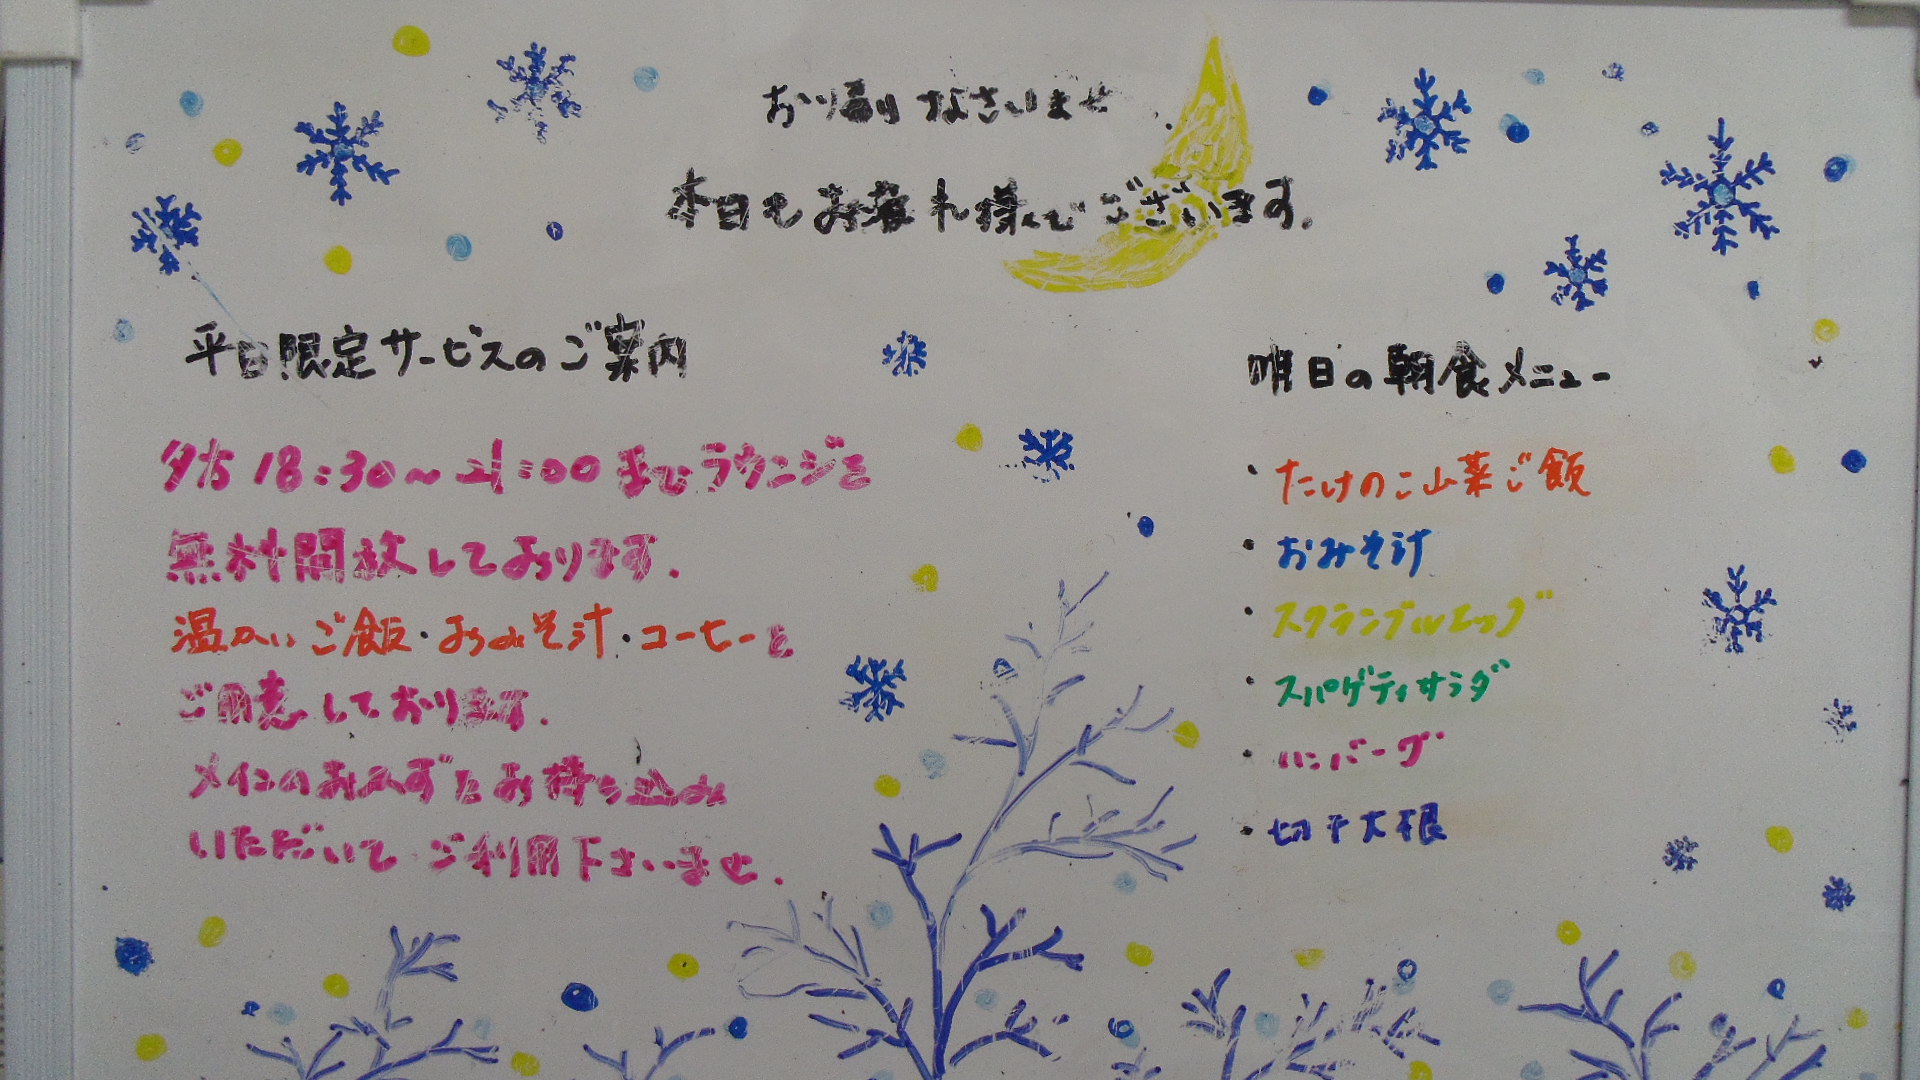 お帰りなさいませ
本日もお疲れ様でございます。
平日限定サービスのご案内
夕方 18:30～21:00までラウンジを
無料開放しております。
温かいご飯・おみそ汁・コーヒーを
ご用意しております。
メインのおかずをお持ち込み
いただいてご利用下さいませ。
明日の朝食メニュー
・たけのこ山菜ご飯
・おみそ汁
・スクランブルエッグ
・スパゲティサラダ
・ハンバーグ
・切干大根